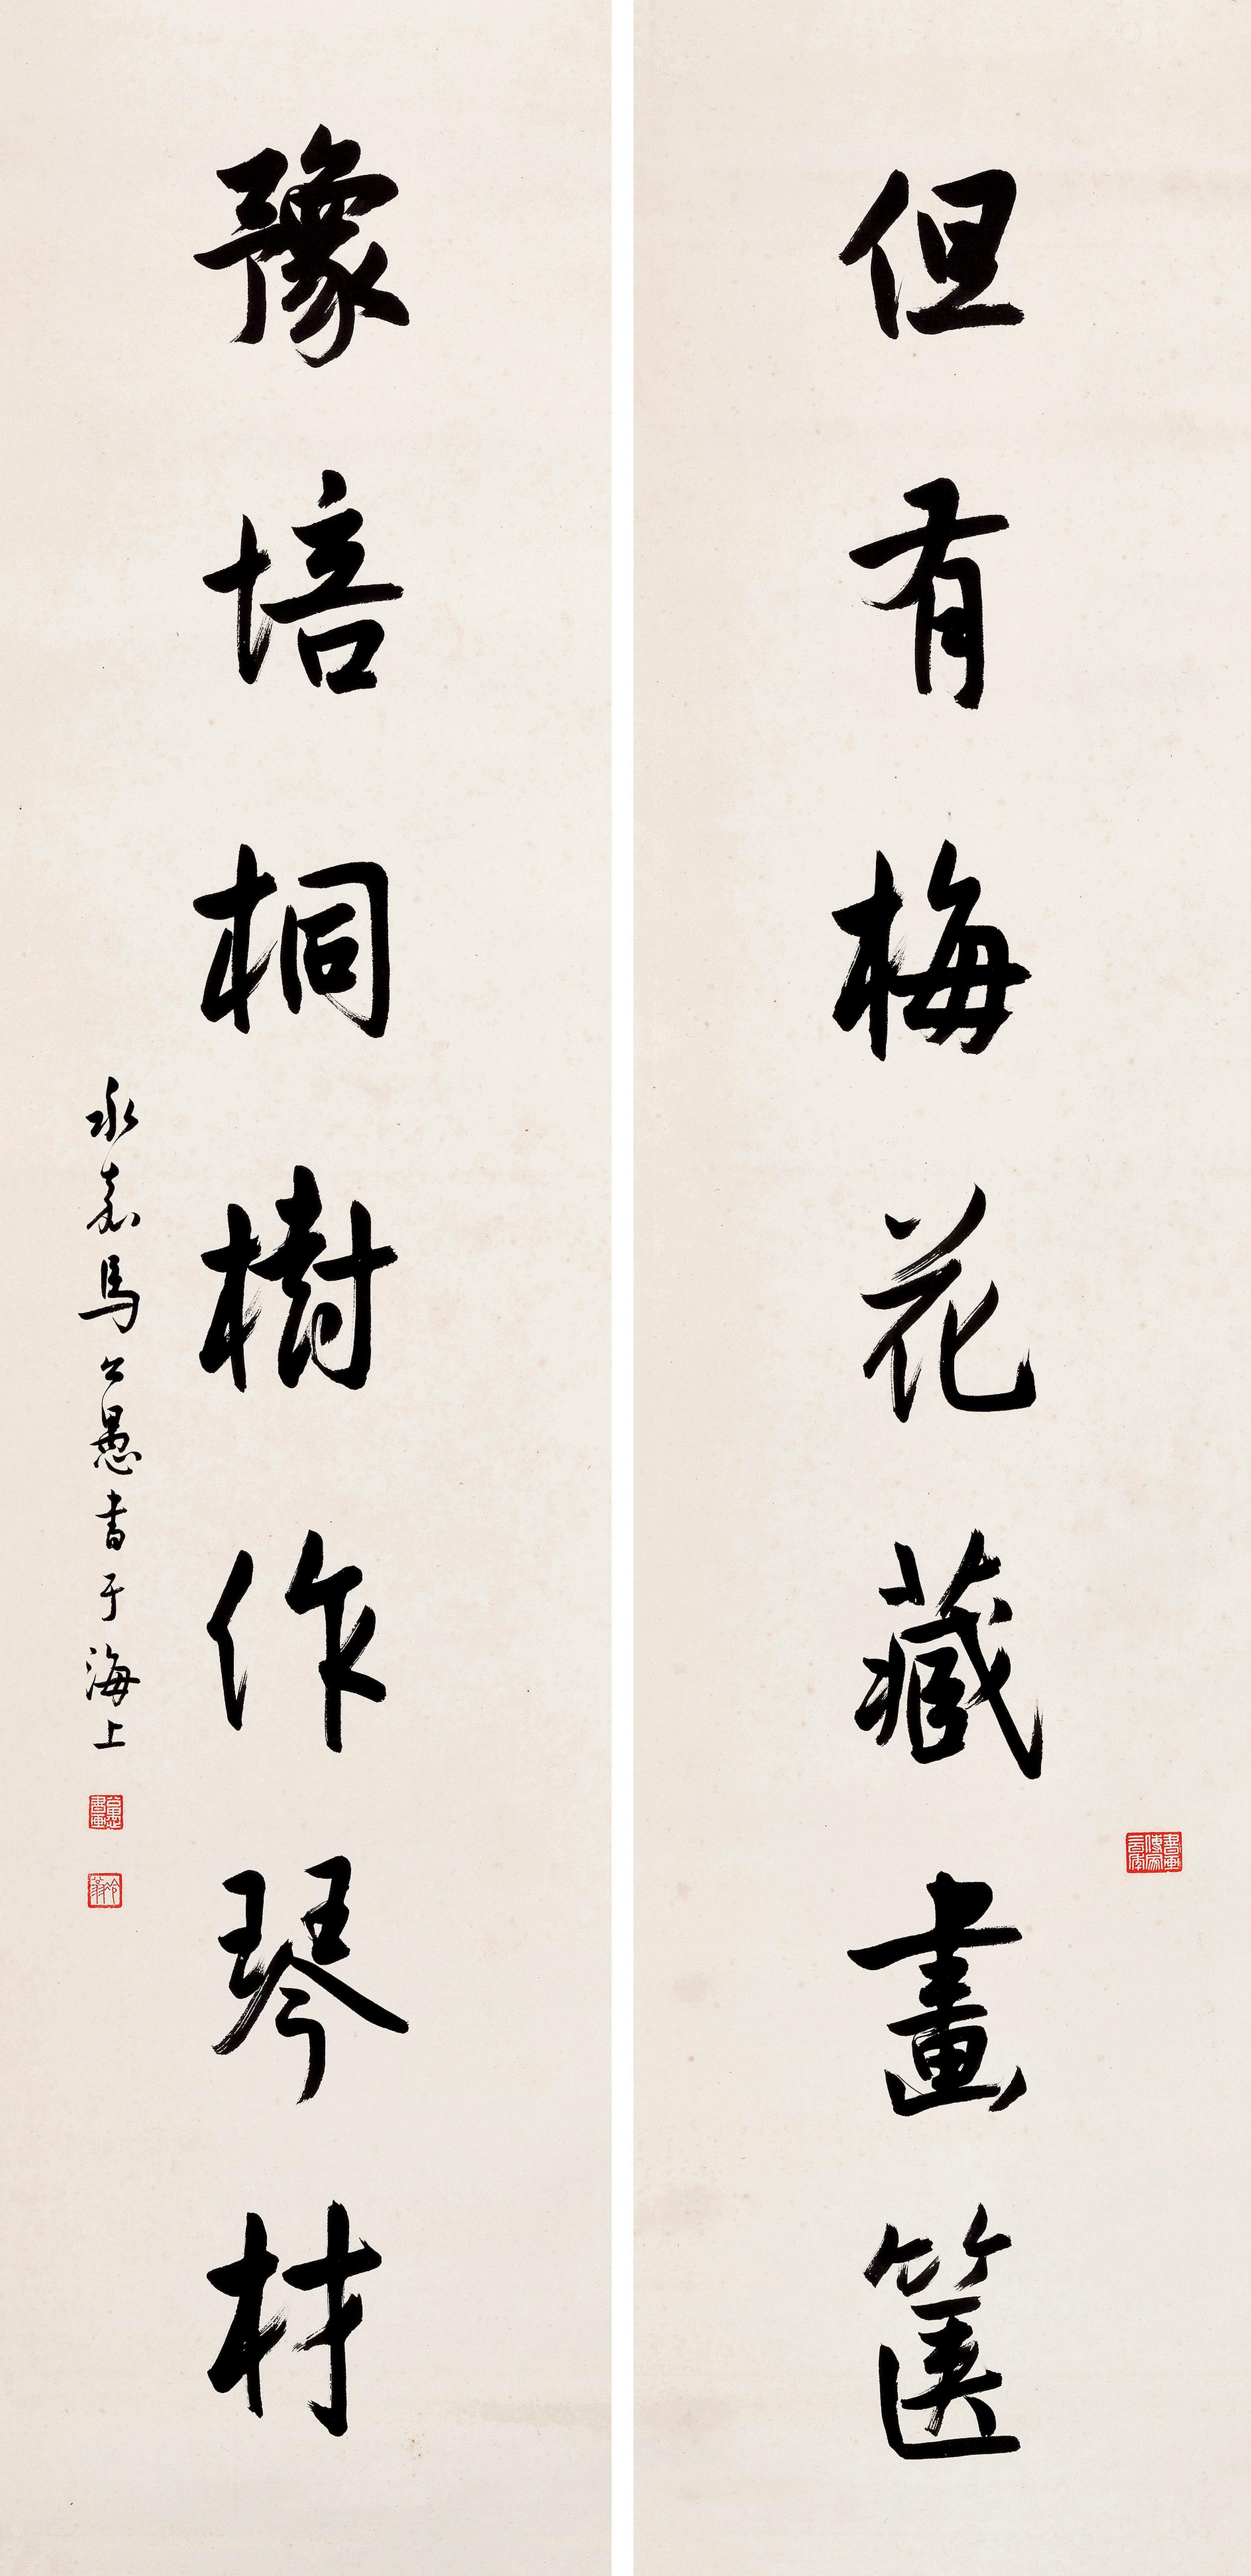 但有梅花藏畫篋
豫培桐樹作琴材
永嘉馬公愚書于海上